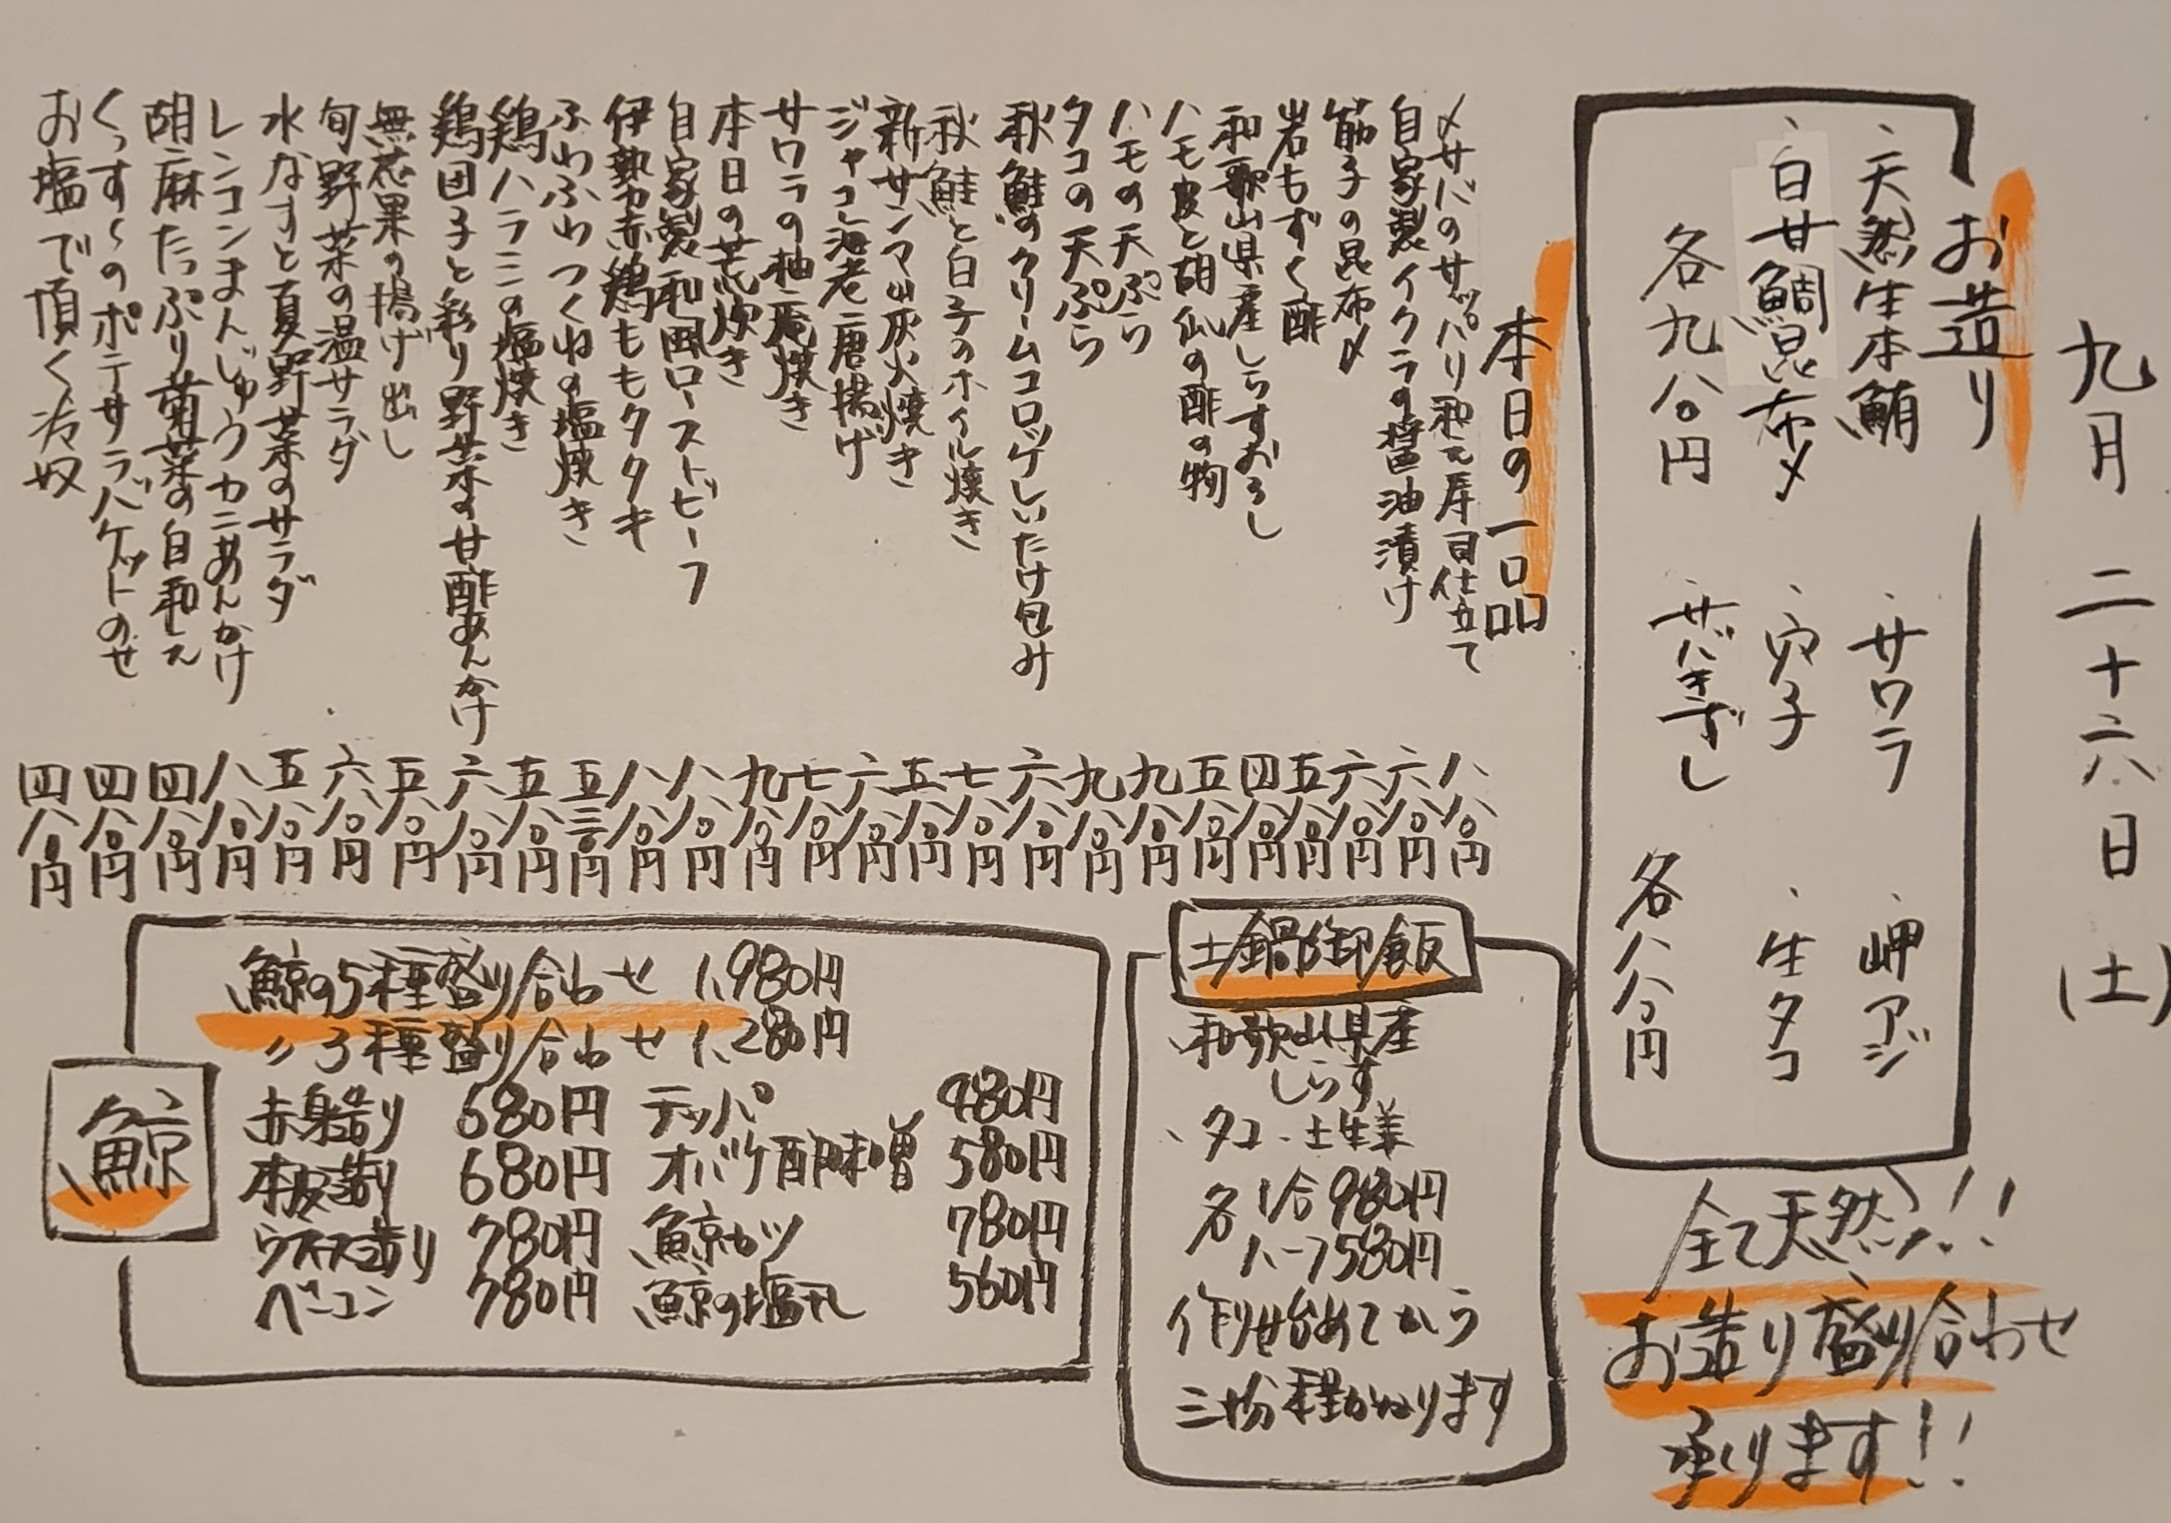 九月二十六日(土)
お造り
、天然生本鮪
、白甘鯛昆布〆
各九八〇円
、サワラ
、穴子
、サバきずし
、岬アジ
、生タコ
各八八〇円
全て天然!!
お造り盛り合わせ
承ります!!
本日の一品
〆サバのサッパリ和え寿司仕立て 八八〇円
自家製イクラの醤油漬け 六八〇円
筋子の昆布〆 六八〇円
岩もずく酢 五八〇円
和歌山県産しらすおろし 四八〇円
ハモ皮と胡瓜の酢の物 五八〇円
ハモの天ぷら 九八〇円
タコの天ぷら 九八〇円
秋鮭のクリームコロッケしいたけ包み 六八〇円
秋鮭と白子のホイル焼き 七八〇円
新サンマ山灰火焼き 五八〇円
ジャコ海老唐揚げ 六八〇円
サワラの柚庵焼き 七八〇円
本日の荒炊き 九八〇円
自家製和風ローストビーフ 八八〇円
伊勢赤鶏ももタタキ 八八〇円
ふわふわつくねの塩焼き 五三〇円
鶏ハラミの塩焼き 五八〇円
鶏団子と彩り野菜の甘酢あんかけ 六八〇円
無花果の揚げ出し 五八〇円
旬野菜の温サラダ 六八〇円
水なすと夏野菜のサラダ 五八〇円
レンコンまんじゅうカニあんかけ 八八〇円
胡麻たっぷり菊菜の白和え 四八〇円
くっす〜のポテサラバゲットのせ 四八〇円
お塩で頂く冷奴 四八〇円
土鍋御飯
和歌山県産
しらす
、タコ、土生姜
各1合980円
ハーフ580円
作り始めてから
三十分程かかります
鯨
鯨の5種盛り合わせ 1,980円
〃3種盛り合わせ 1,280円
赤身造り 680円
本皮造り 680円
ウネス造り 780円
ベーコン 780円
テッパ 480円
オバケ酢味噌 580円
鯨カツ 780円
鯨の塩ユレ 560円